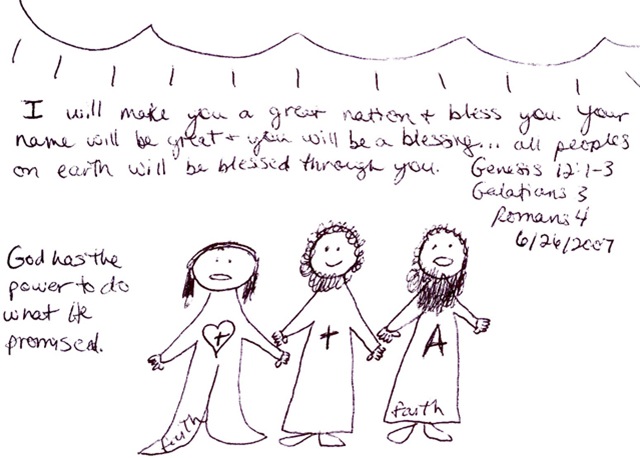 I will make you a great nation + bless you. Your
name will be great + you will be a blessing... all peoples
on earth will be blessed through you.
Genesis 12:1-3
Galatians 3
Romans 4
6/26/2007
God has the
power to do
what He
promised.
A
faith
faith